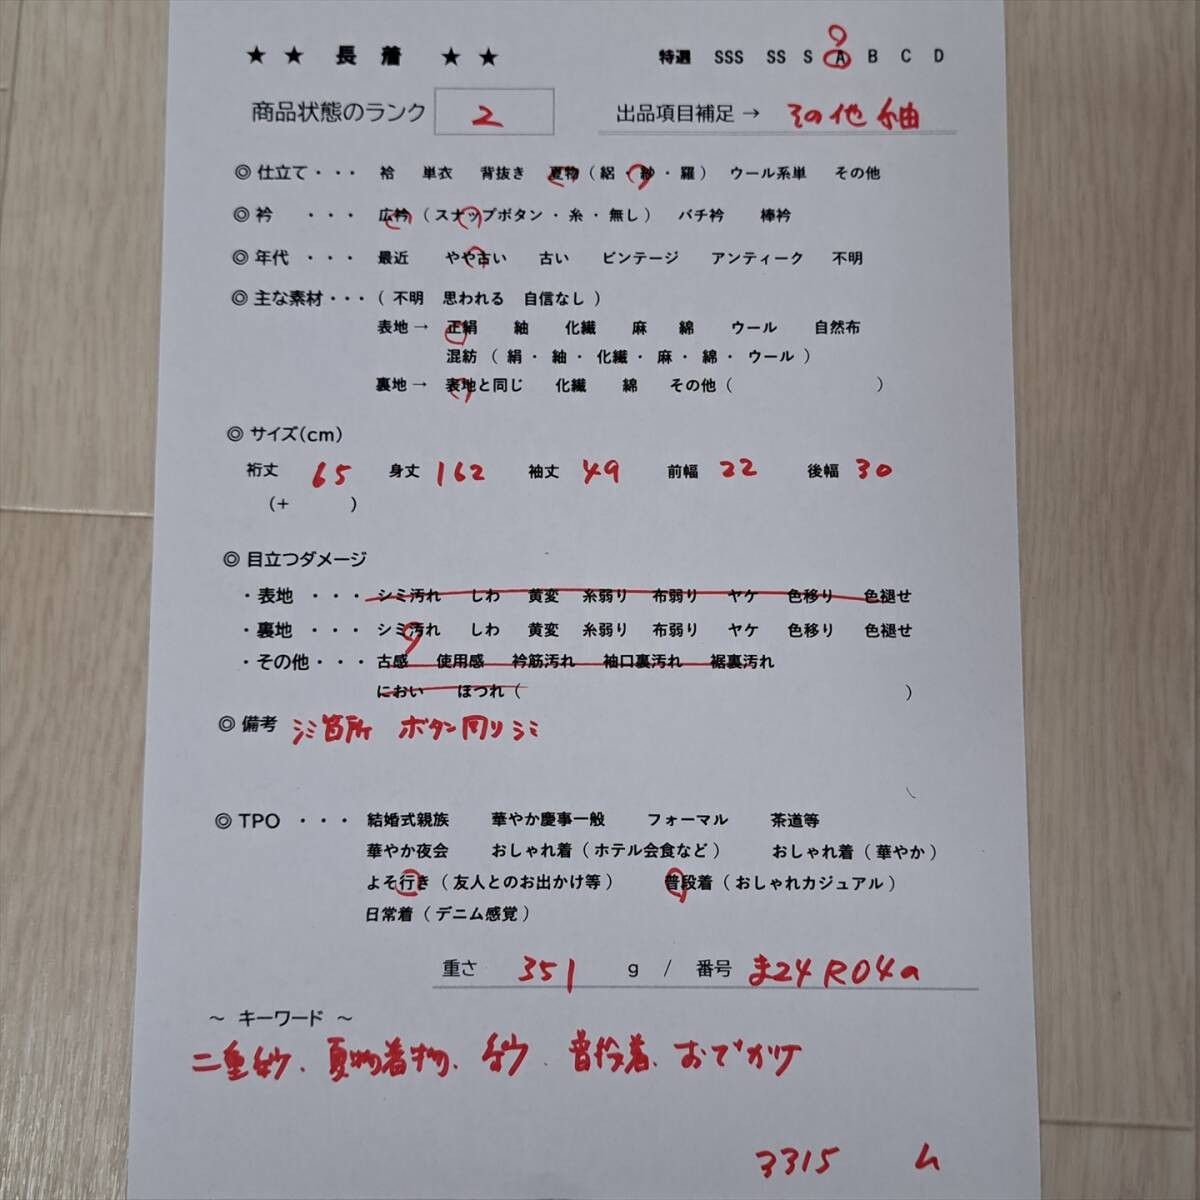 ★ ★ 長 着 ★ ★ 特選 SSS SS S A B C D
商品状態のランク 2 出品項目補足 → その他 紬
◎ 仕立て・・・ 袷 単衣 背抜き 夏物（絽・紗・羅） ウール系単 その他
◎ 衿 ・・・ 広衿（スナップボタン・糸・無し） バチ衿 棒衿
◎ 年代・・・ 最近 やや古い 古い ビンテージ アンティーク 不明
◎ 主な素材・・・（不明 思われる 自信なし）
表地→ 正絹 紬 化繊 麻 綿 ウール 自然布
混紡（絹・紬・化繊・麻・綿・ウール）
裏地→ 表地と同じ 化繊 綿 その他（ ）
◎ サイズ(cm)
裄丈 65 身丈 162 袖丈 49 前幅 22 後幅 30
（+ ）
◎ 目立つダメージ
・表地・・・ シミ汚れ しわ 黄変 糸弱り 布弱り ヤケ 色移り 色褪せ
・裏地・・・ シミ汚れ しわ 黄変 糸弱り 布弱り ヤケ 色移り 色褪せ
・その他・・・ 古感 使用感 衿筋汚れ 袖口裏汚れ 裾裏汚れ
におい ほつれ（ ）
◎ 備考 シミ箇所 ボタン周りシミ
◎ TPO ・・・ 結婚式親族 華やか慶事一般 フォーマル 茶道等
華やか夜会 おしゃれ着（ホテル会食など） おしゃれ着（華やか）
よそ行き（友人とのお出かけ等） 普段着（おしゃれカジュアル）
日常着（デニム感覚）
重さ 351 g / 番号 ま24R04a
～ キーワード ～
二重紗、夏物着物、紗、普段着、おでかけ
3315 ム